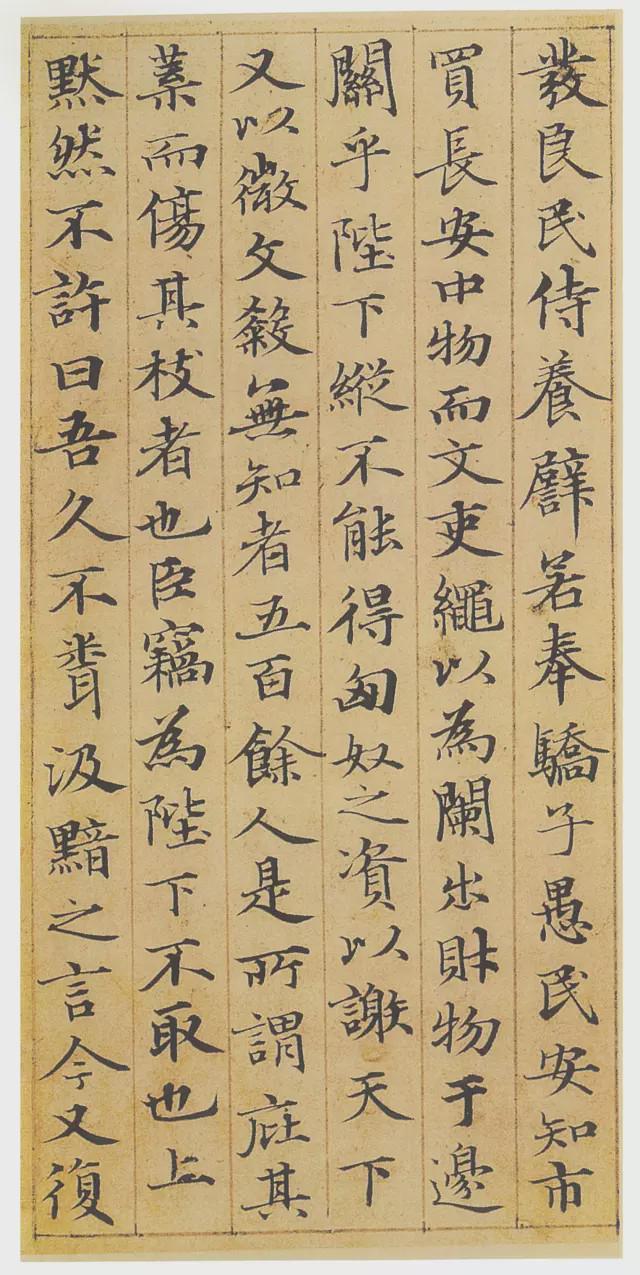 發良民侍養譬若奉驕子愚民安知市
買長安中物而文吏繩以為闌出財物于邊
關乎陛下縱不能得匈奴之資以謝天下
又以微文殺無知者五百餘人是所謂庇其
葉而傷其枝者也臣竊為陛下不取也上
默然不許曰吾久不聞汲黯之言今又復